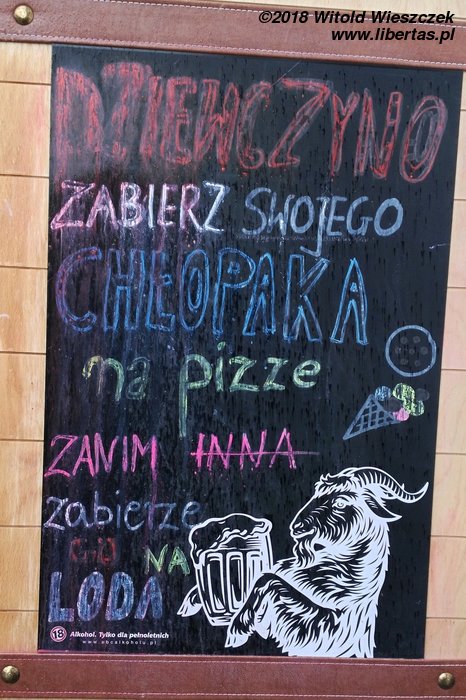 ©2018 Witold Wieszczek
www.libertas.pl
DZIEWCZYNO
ZABIERZ SWOJEGO
CHŁOPAKA
na pizze
ZANIM INNA
zabierze
GO NA
LODA
18 Alkohol. Tylko dla pełnoletnich
www.abcalkoholu.pl